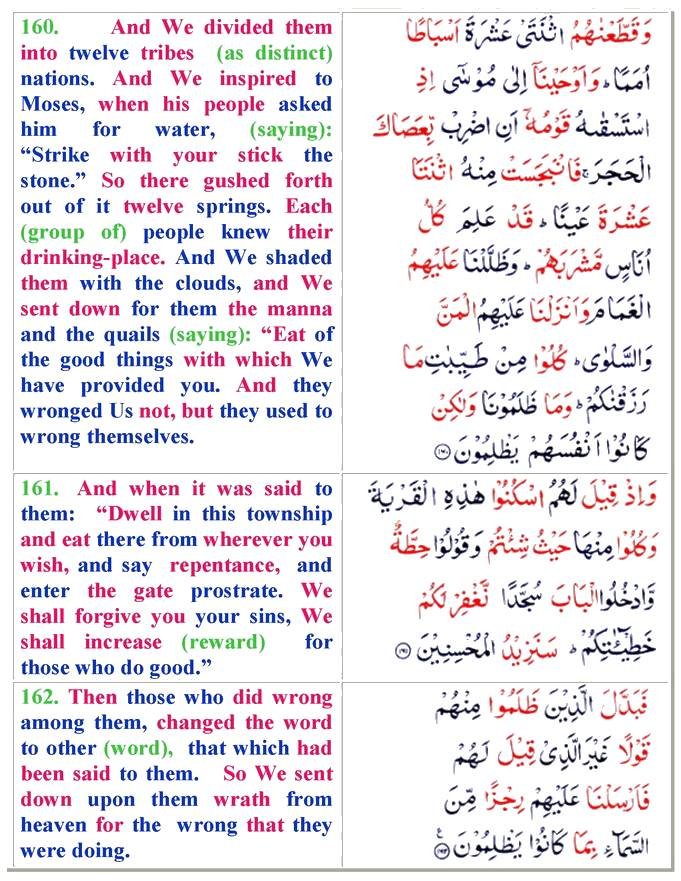 160. And We divided them
into twelve tribes (as distinct)
nations. And We inspired to
Moses, when his people asked
him for water, (saying):
“Strike with your stick the
stone.” So there gushed forth
out of it twelve springs. Each
(group of) people knew their
drinking-place. And We shaded
them with the clouds, and We
sent down for them the manna
and the quails (saying): “Eat of
the good things with which We
have provided you. And they
wronged Us not, but they used to
wrong themselves.
وَقَطَّعْنٰهُمُ اثْنَتَىْ عَشْرَةَ اَسْبَاطًا
اُمَمًا ؕ وَاَوْحَيْنَاۤ اِلٰى مُوْسٰٓى اِذِ
اسْتَسْقٰىهُ قَوْمُهٗۤ اَنِ اضْرِبْ بِّعَصَاكَ
الْحَجَرَ ۚ فَانْۢبَجَسَتْ مِنْهُ اثْنَتَا
عَشْرَةَ عَيْنًا ؕ قَدْ عَلِمَ كُلُّ
اُنَاسٍ مَّشْرَبَهُمْ ؕ وَظَلَّلْنَا عَلَيْهِمُ
الْغَمَامَ وَاَنْزَلْنَا عَلَيْهِمُ الْمَنَّ
وَالسَّلْوٰى ؕ كُلُوْا مِنْ طَيِّبٰتِ مَا
رَزَقْنٰكُمْ ؕ وَمَا ظَلَمُوْنَا وَلٰكِنْ
كَانُوْۤا اَنْفُسَهُمْ يَظْلِمُوْنَ ﴿۱۶۰﴾
161. And when it was said to
them: “Dwell in this township
and eat there from wherever you
wish, and say repentance, and
enter the gate prostrate. We
shall forgive you your sins, We
shall increase (reward) for
those who do good.”
وَاِذْ قِيْلَ لَهُمُ اسْكُنُوْا هٰذِهِ الْقَرْيَةَ
وَكُلُوْا مِنْهَا حَيْثُ شِئْتُمْ وَقُوْلُوْا حِطَّةٌ
وَّادْخُلُوا الْبَابَ سُجَّدًا نَّغْفِرْ لَكُمْ
خَطِيْٓـٰٔتِكُمْ ؕ سَنَزِيْدُ الْمُحْسِنِيْنَ ﴿۱۶۱﴾
162. Then those who did wrong
among them, changed the word
to other (word), that which had
been said to them. So We sent
down upon them wrath from
heaven for the wrong that they
were doing.
فَبَدَّلَ الَّذِيْنَ ظَلَمُوْا مِنْهُمْ
قَوْلًا غَيْرَ الَّذِىْ قِيْلَ لَهُمْ
فَاَرْسَلْنَا عَلَيْهِمْ رِجْزًا مِّنَ
السَّمَآءِ بِمَا كَانُوْا يَظْلِمُوْنَ ﴿۱۶۲﴾ ع